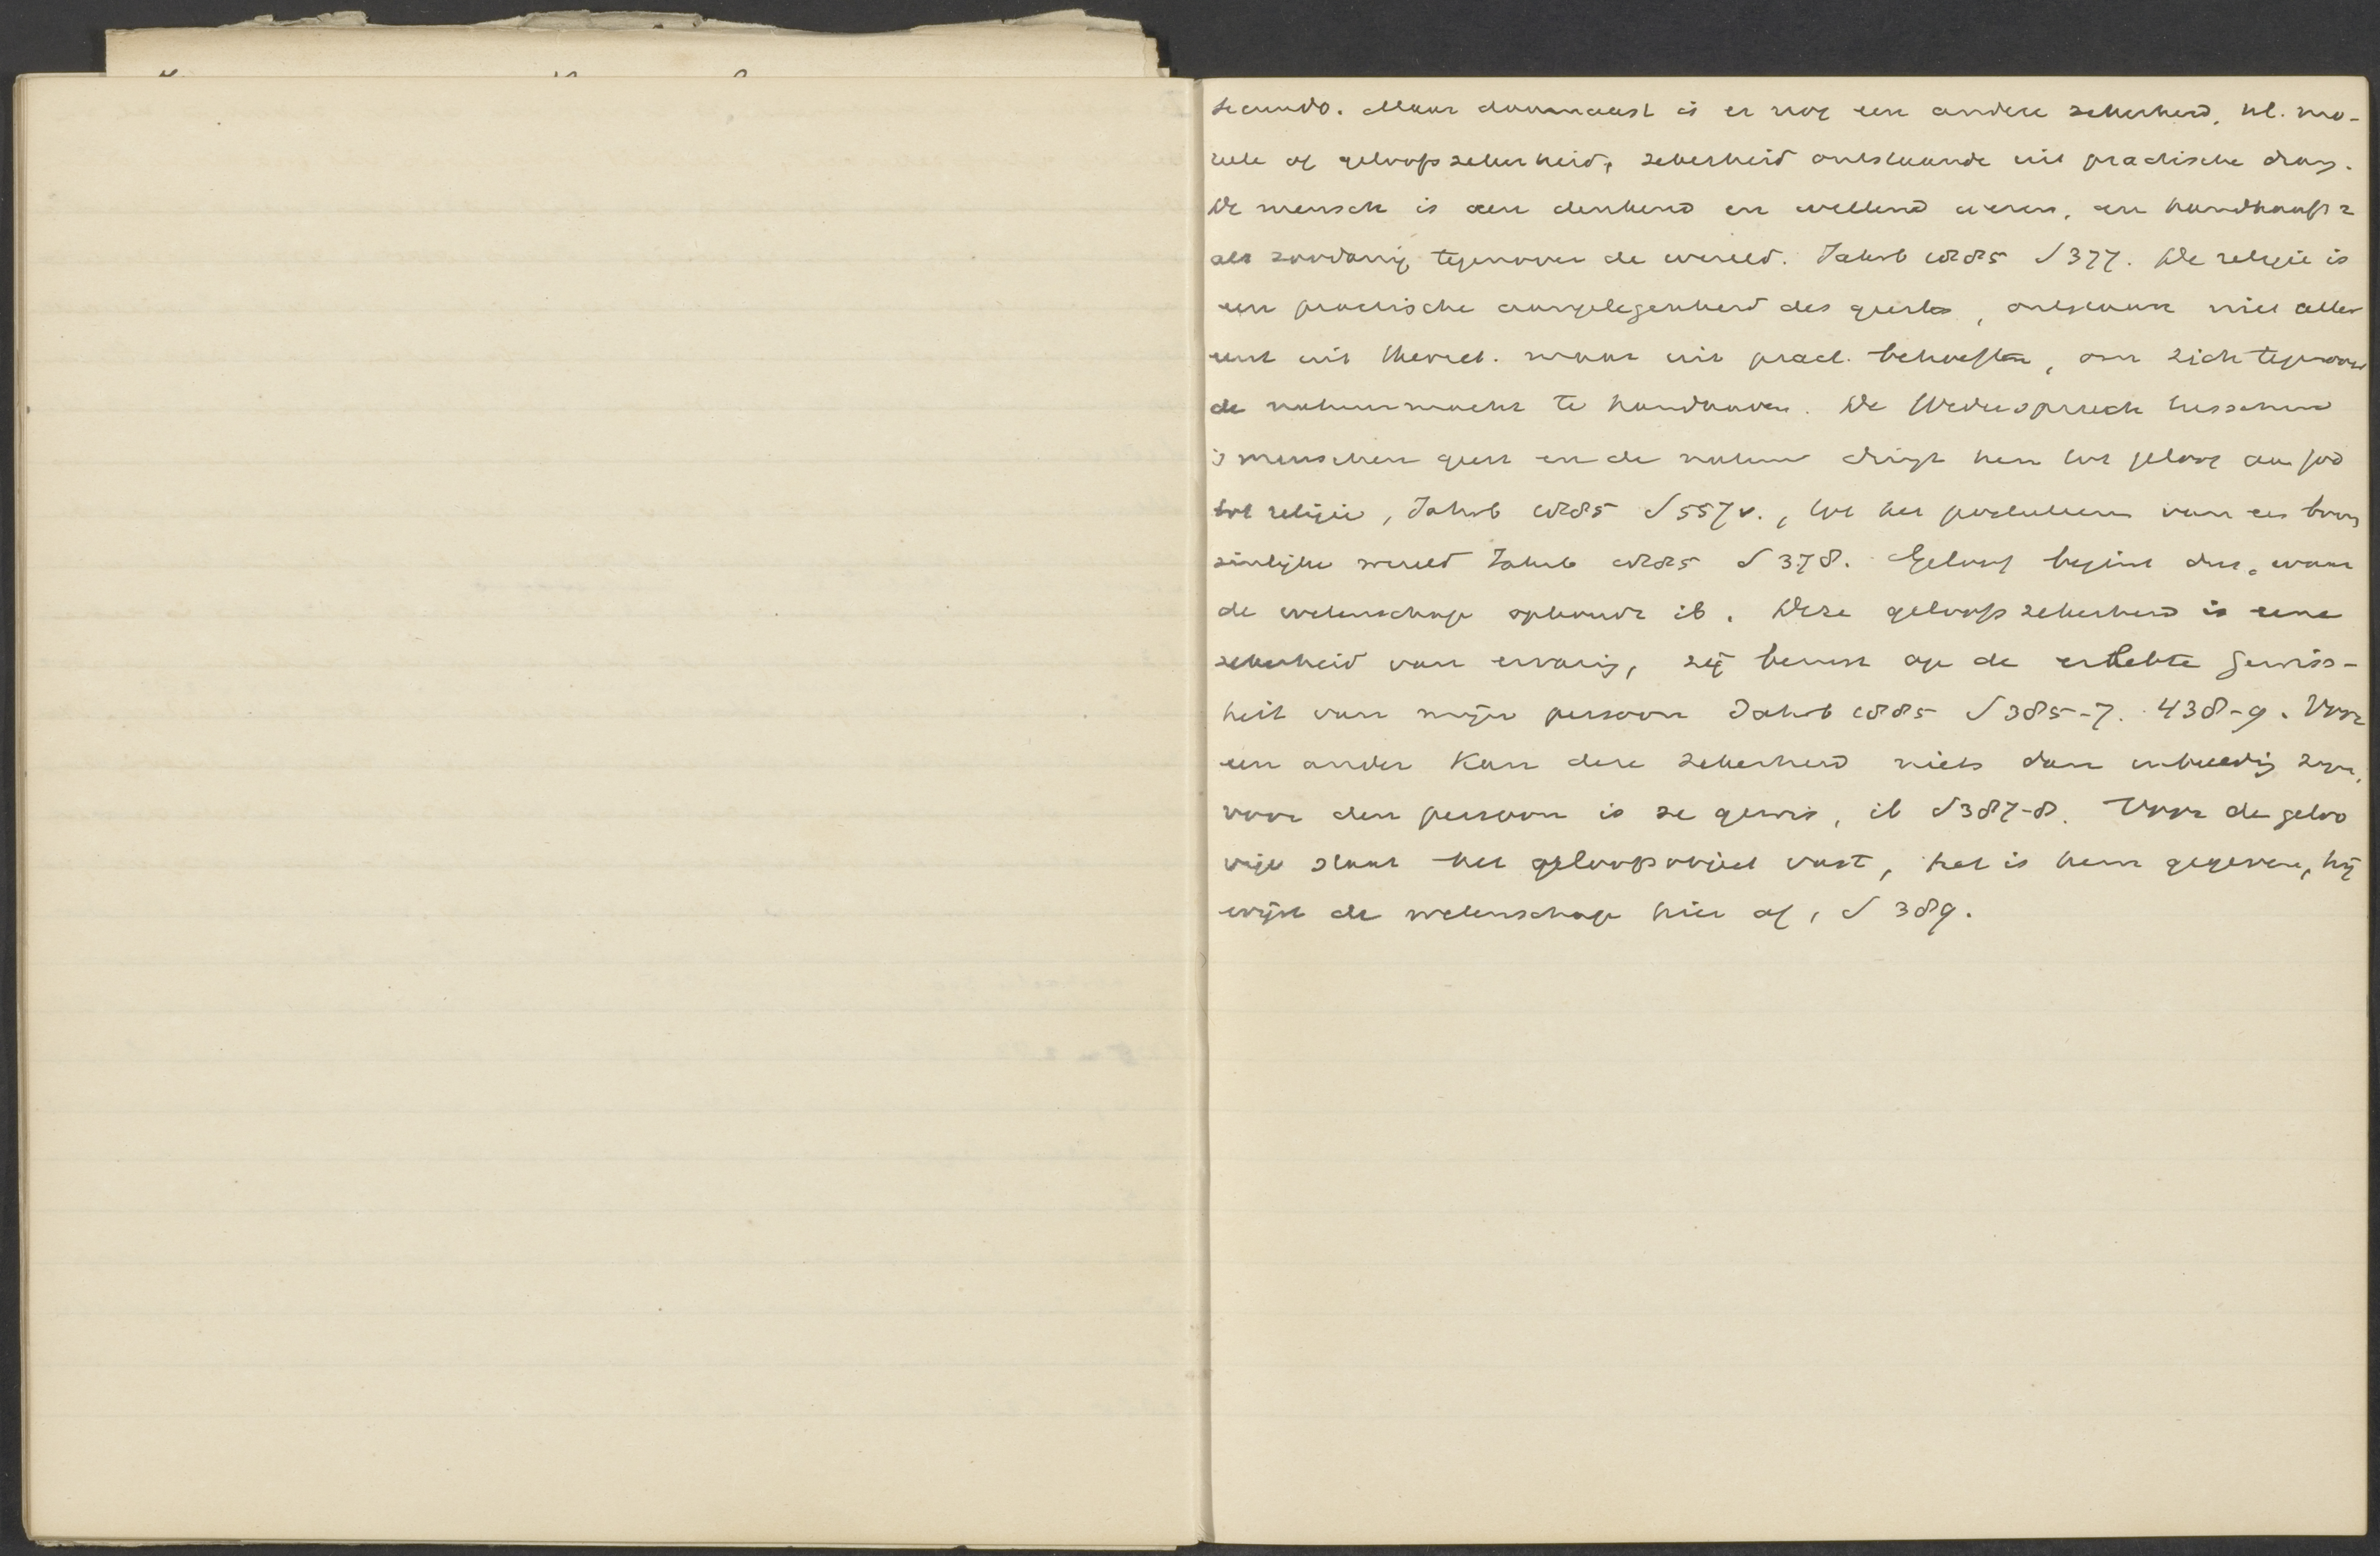 secundo. Maar daarnaast is er nog een andere zekerheid, nl. mo-
reele of geloofszekerheid, zekerheid ontstaande uit practische drang.
De mensch is een denkend en willend wezen, en handhaaft z
als zoodanig tegenover de wereld. Jahrb 1885 S 377. De religie is
een practische aangelegenheid des geestes, ontstaan niet allen
eerst uit theoret. maar uit pract. behoeften, om zich tegenover
de natuurmacht te handhaven. De Widerspruch tusschen
's menschen geest en de natuur dringt hem tot geloof aan God
tot religie, Jahrb 1885 S 557v., tot het postuleren van een boven
zinlijke wereld Jahrb 1885 S 378. Geloof begint dus, waar
de wetenschap ophoudt ib. Deze geloofszekerheid is eene
zekerheid van ervaring, zij berust op de erlebte Gewiss-
heit van mijn persoon Jahrb 1885 S 385-7. 438-9. Voor
een ander kan deze zekerheid niets dan zijn,
voor den persoon is ze gewis, ib S 387-8. Voor de geloo
vige staat het geloofsobject vast, het is hem gegeven, hij
wijst de wetenschap hier af, S 389.